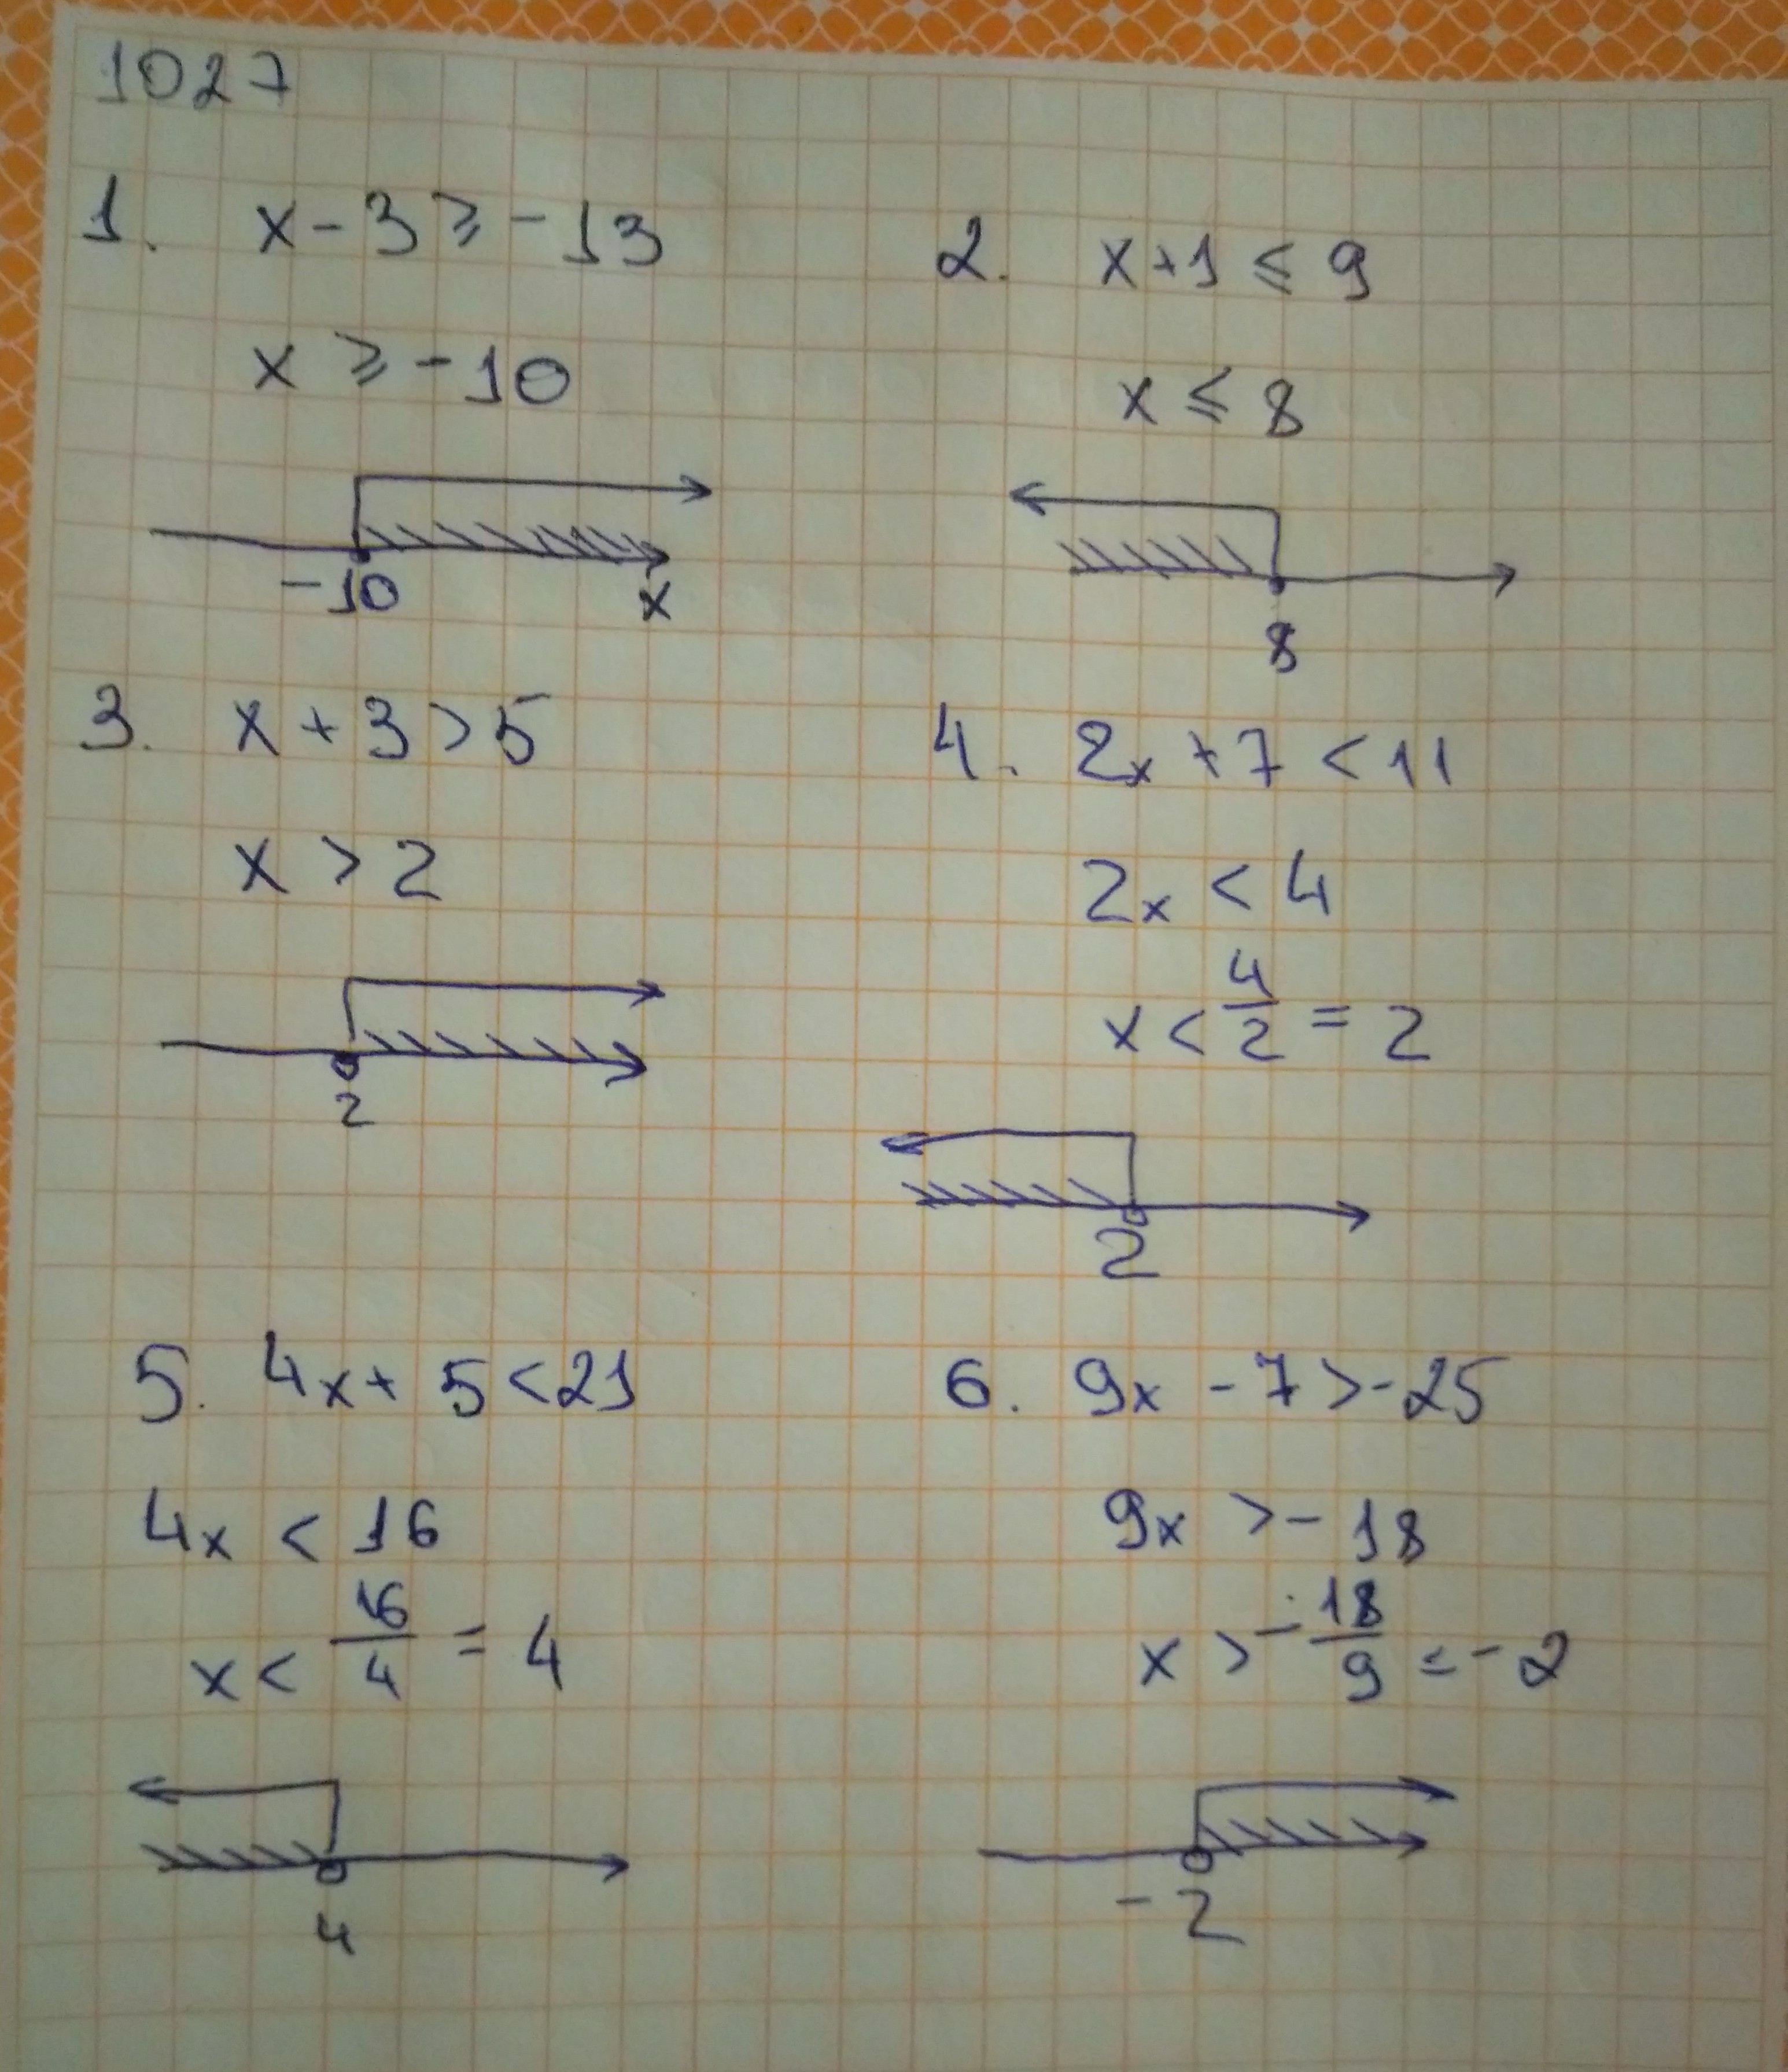 1027
1. x - 3 ⩾ - 13
x ⩾ - 10
-10 x
2. x + 1 ⩽ 9
x ⩽ 8
8
3. x + 3 > 5
x > 2
2
4. 2x + 7 < 11
2x < 4
x < 4/2 = 2
2
5. 4x + 5 < 21
4x < 16
x < 16/4 = 4
4
6. 9x - 7 > - 25
9x > - 18
x > - 18/9 = - 2
- 2